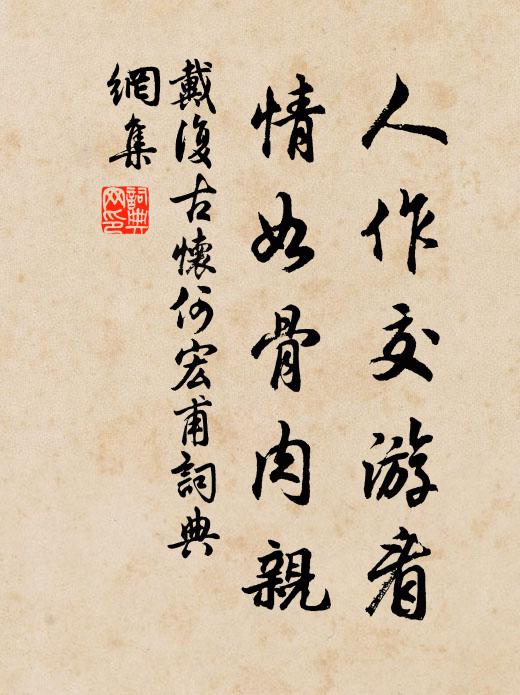 人作交游看
情如骨肉親
戴復古懷何宏甫詞典
網集
詞典
网印